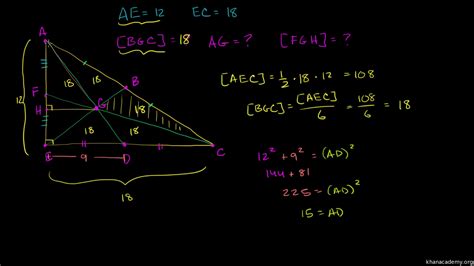 AE = 12 EC = 18
[BGC] = 18 AG = ? [FGH] = ?
A
18
18
B
[AEC] = 1/2 · 18 · 12 = 108
F
18
G
18
[BGC] = [AEC]/6 = 108/6 = 18
12
H
18
18
E
9
D
C
12² + 9² = (AD)²
144 + 81
18
225 = (AD)²
15 = AD
khanacademy.org